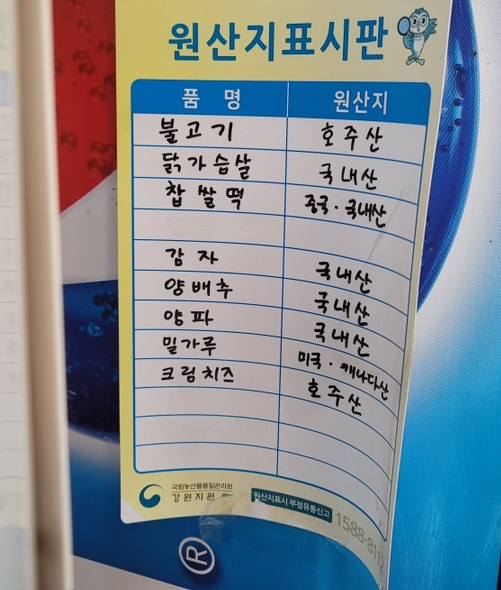 원산지표시판
품 명 원산지
불고기 호주산
닭가슴살 국내산
찹쌀떡 중국·국내산
감자 국내산
양배추 국내산
양파 국내산
밀가루 미국·캐나다산
크림치즈 호주산
국립농산물품질관리원
강원지원
원산지표시 부정유통신고
1588-811
®